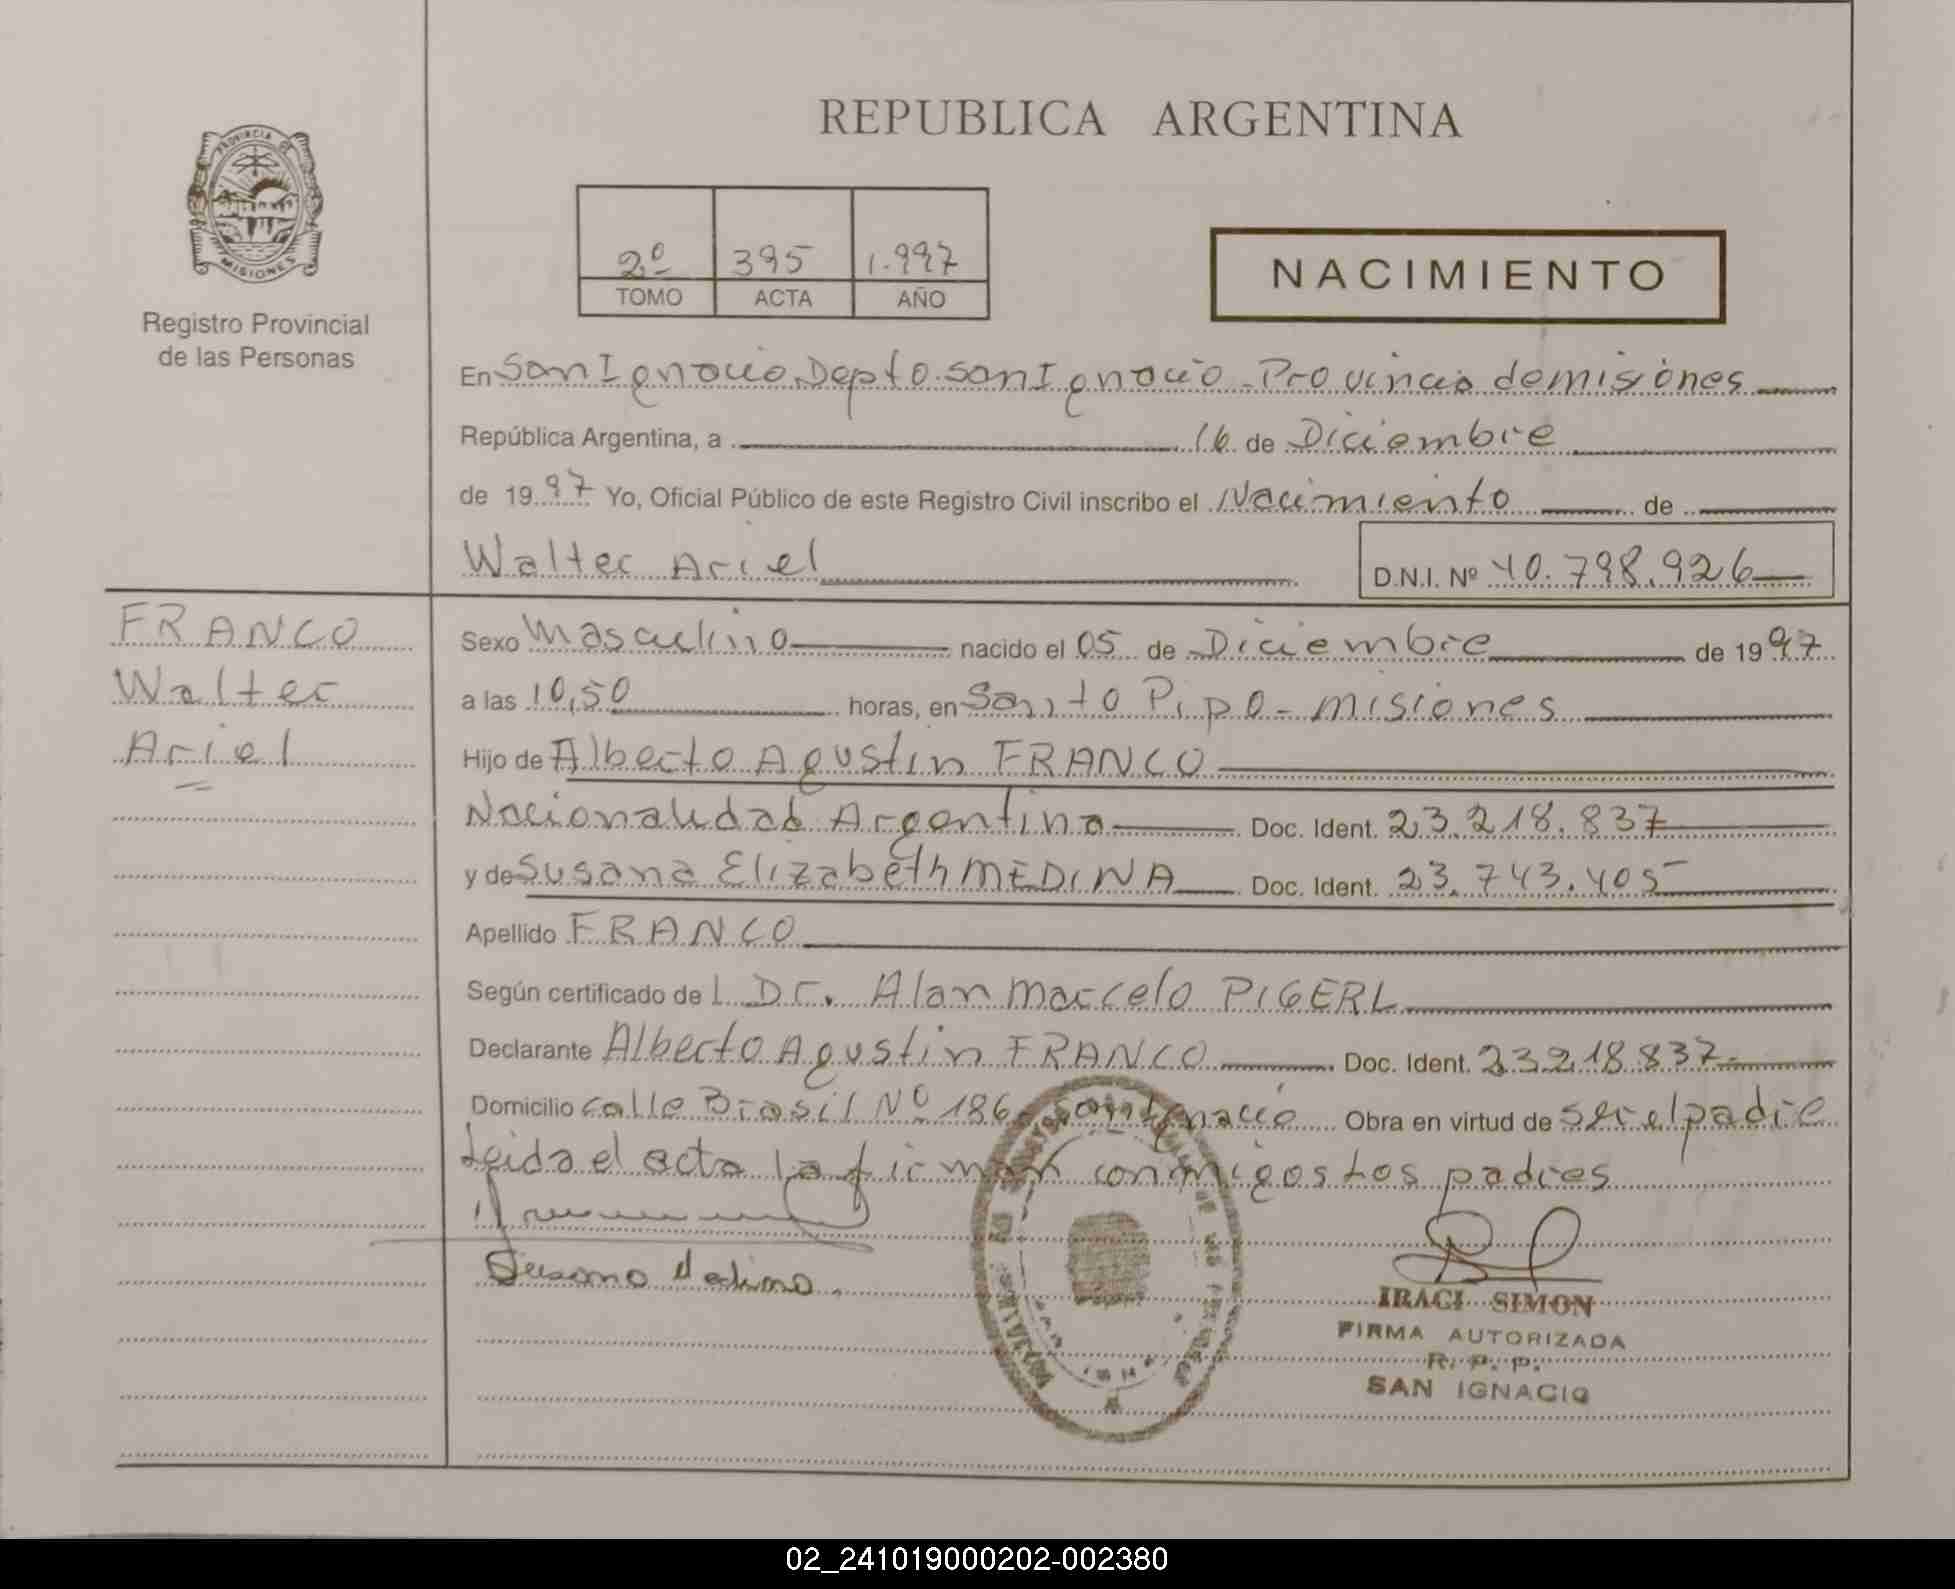 REPUBLICA ARGENTINA
PROVINCIA DE
MISIONES
Registro Provincial
de las Personas
2º 395 1.997
TOMO ACTA AÑO
NACIMIENTO
En San Ignacio. Depto San Ignacio - Provincia de misiones
República Argentina, a 16 de Diciembre
de 1997 Yo, Oficial Público de este Registro Civil inscribo el Nacimiento de
Walter Ariel D.N.I. Nº 40.798.926
FRANCO
Walter
Ariel
Sexo Masculino nacido el 05 de Diciembre de 1997
a las 10,50 horas, en Santo Pipo - misiones
Hijo de Alberto Agustin FRANCO
Nacionalidad Argentina Doc. Ident. 23.218.837
y de Susana Elizabeth MEDINA Doc. Ident. 23.743.405
Apellido FRANCO
Según certificado de l Dr. Alan Marcelo PIGERL
Declarante Alberto Agustin FRANCO Doc. Ident. 23218837
Domicilio calle Brasil Nº 186 San Ignacio Obra en virtud de ser el padre
Leida el acta la firman conmigos Los padres
Susana Medina
IRACI SIMON
FIRMA AUTORIZADA
R. P. P.
SAN IGNACIO
02_241019000202-002380